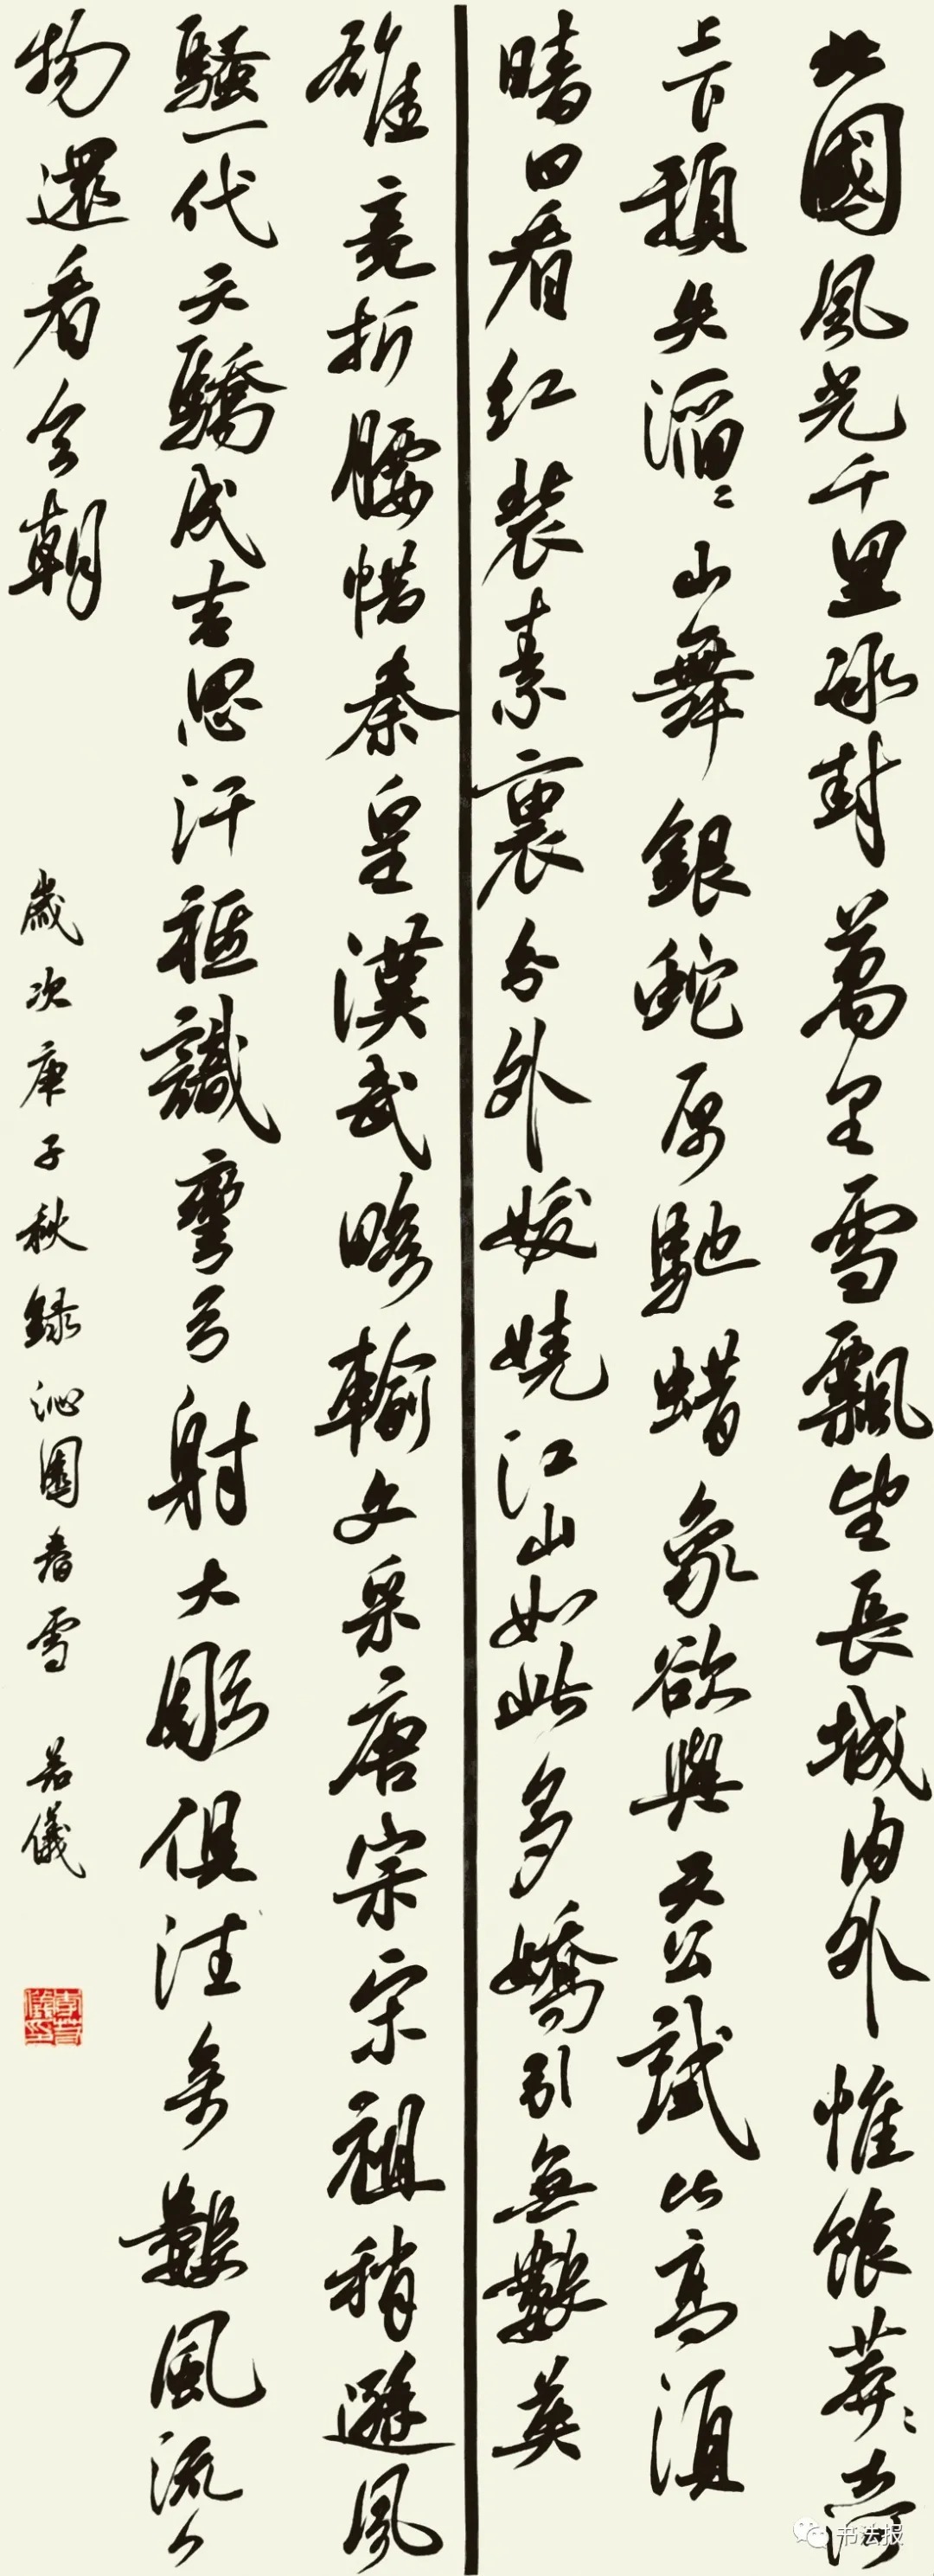 北國風光千里冰封萬里雪飄望長城内外惟餘莽〻大河
上下頓失滔〻山舞銀蛇原馳蜡象欲與天公試比高須
晴日看红裝素裹分外妖嬈江山如此多嬌引無數英
雄竞折腰惜秦皇漢武略輸文采唐宗宋祖稍遜風
騷一代天驕成吉思汗祗識彎弓射大雕俱往矣數風流人
物還看今朝
歲次庚子秋錄沁園春雪 若儀
李若儀印
书法报